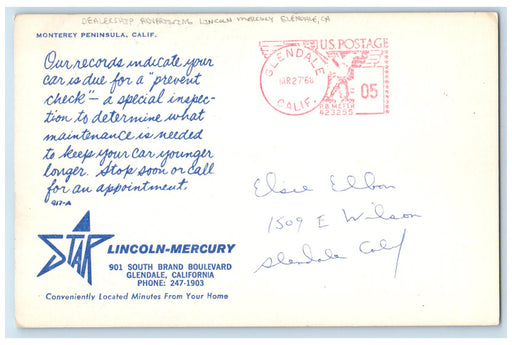 DEALERSHIP ADVERTISING LINCOLN MERCURY GLENDALE, CA
MONTEREY PENINSULA, CALIF.
Our records indicate your
car is due for a "prevent
check" – a special inspec-
tion to determine what
maintenance is needed
to keep your car younger
longer. Stop soon or call
for an appointment.
917-A
STAR
LINCOLN-MERCURY
901 SOUTH BRAND BOULEVARD
GLENDALE, CALIFORNIA
PHONE: 247-1903
Conveniently Located Minutes From Your Home
U.S. POSTAGE
GLENDALE
MAR 27 '68
CALIF.
05
P.B. METER
423255
Elsie Elbon
1509 E Wilson
Glendale Calif